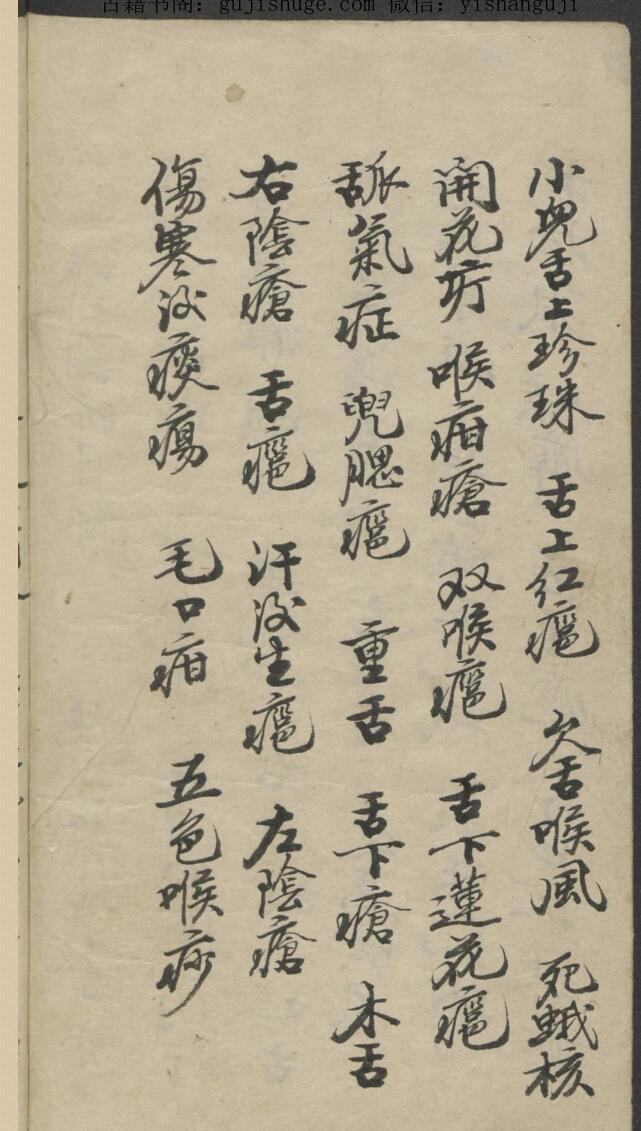 古籍书阁：gujishuge.com 微信：yishanguji
小兒舌上珍珠 舌上红㿈 欠舌喉風 死蛾核
開花疔 喉疳瘡 双喉㿈 舌下蓮花㿈
舐氣症 兜腮㿈 重舌 舌下瘡 木舌
右陰瘡 舌㿈 汗没生㿈 左陰瘡
傷寒没痰瘍 毛口疳 五色喉痧